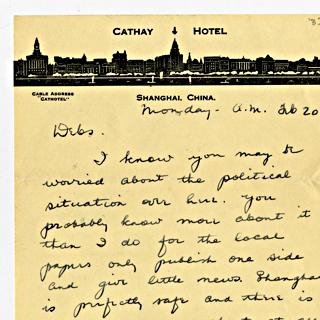 '33
CATHAY HOTEL
CABLE ADDRESS
"CATHOTEL"
SHANGHAI, CHINA.
Monday - A.M. Feb 20
Debs.
I know you may be
worried about the political
situation over here. You
probably know more about it
than I do for the local
papers only publish one side
and give little news. Shanghai
is perfectly safe and there is